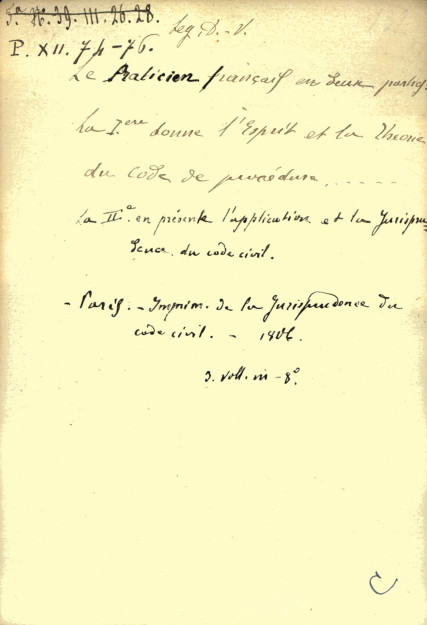 Fª N. 39. III. 26. 28.
Leg. D. - V.
P. XII. 74-76.
Le Praticien français en deux parties.
La I.ere donne l'Esprit et la Theorie
du code de procédure. .....
La IIe. en présente l'application et la Jurispru-
dence du code civil.
- Paris. - Imprim. de la Jurisprudence du
code civil. - 1806.
3. voll. in - 8º
C